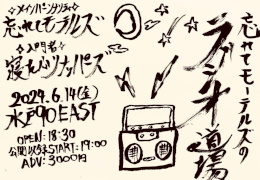 忘れてモーテルズの
ラジオ道場
☆メインパーソナリティ☆
忘れてモーテルズ
☆入門者☆
寝ぶりナッパーズ
2024.6.14(金)
水戸90EAST
OPEN:18:30
公開収録START:19:00
ADV:3000円